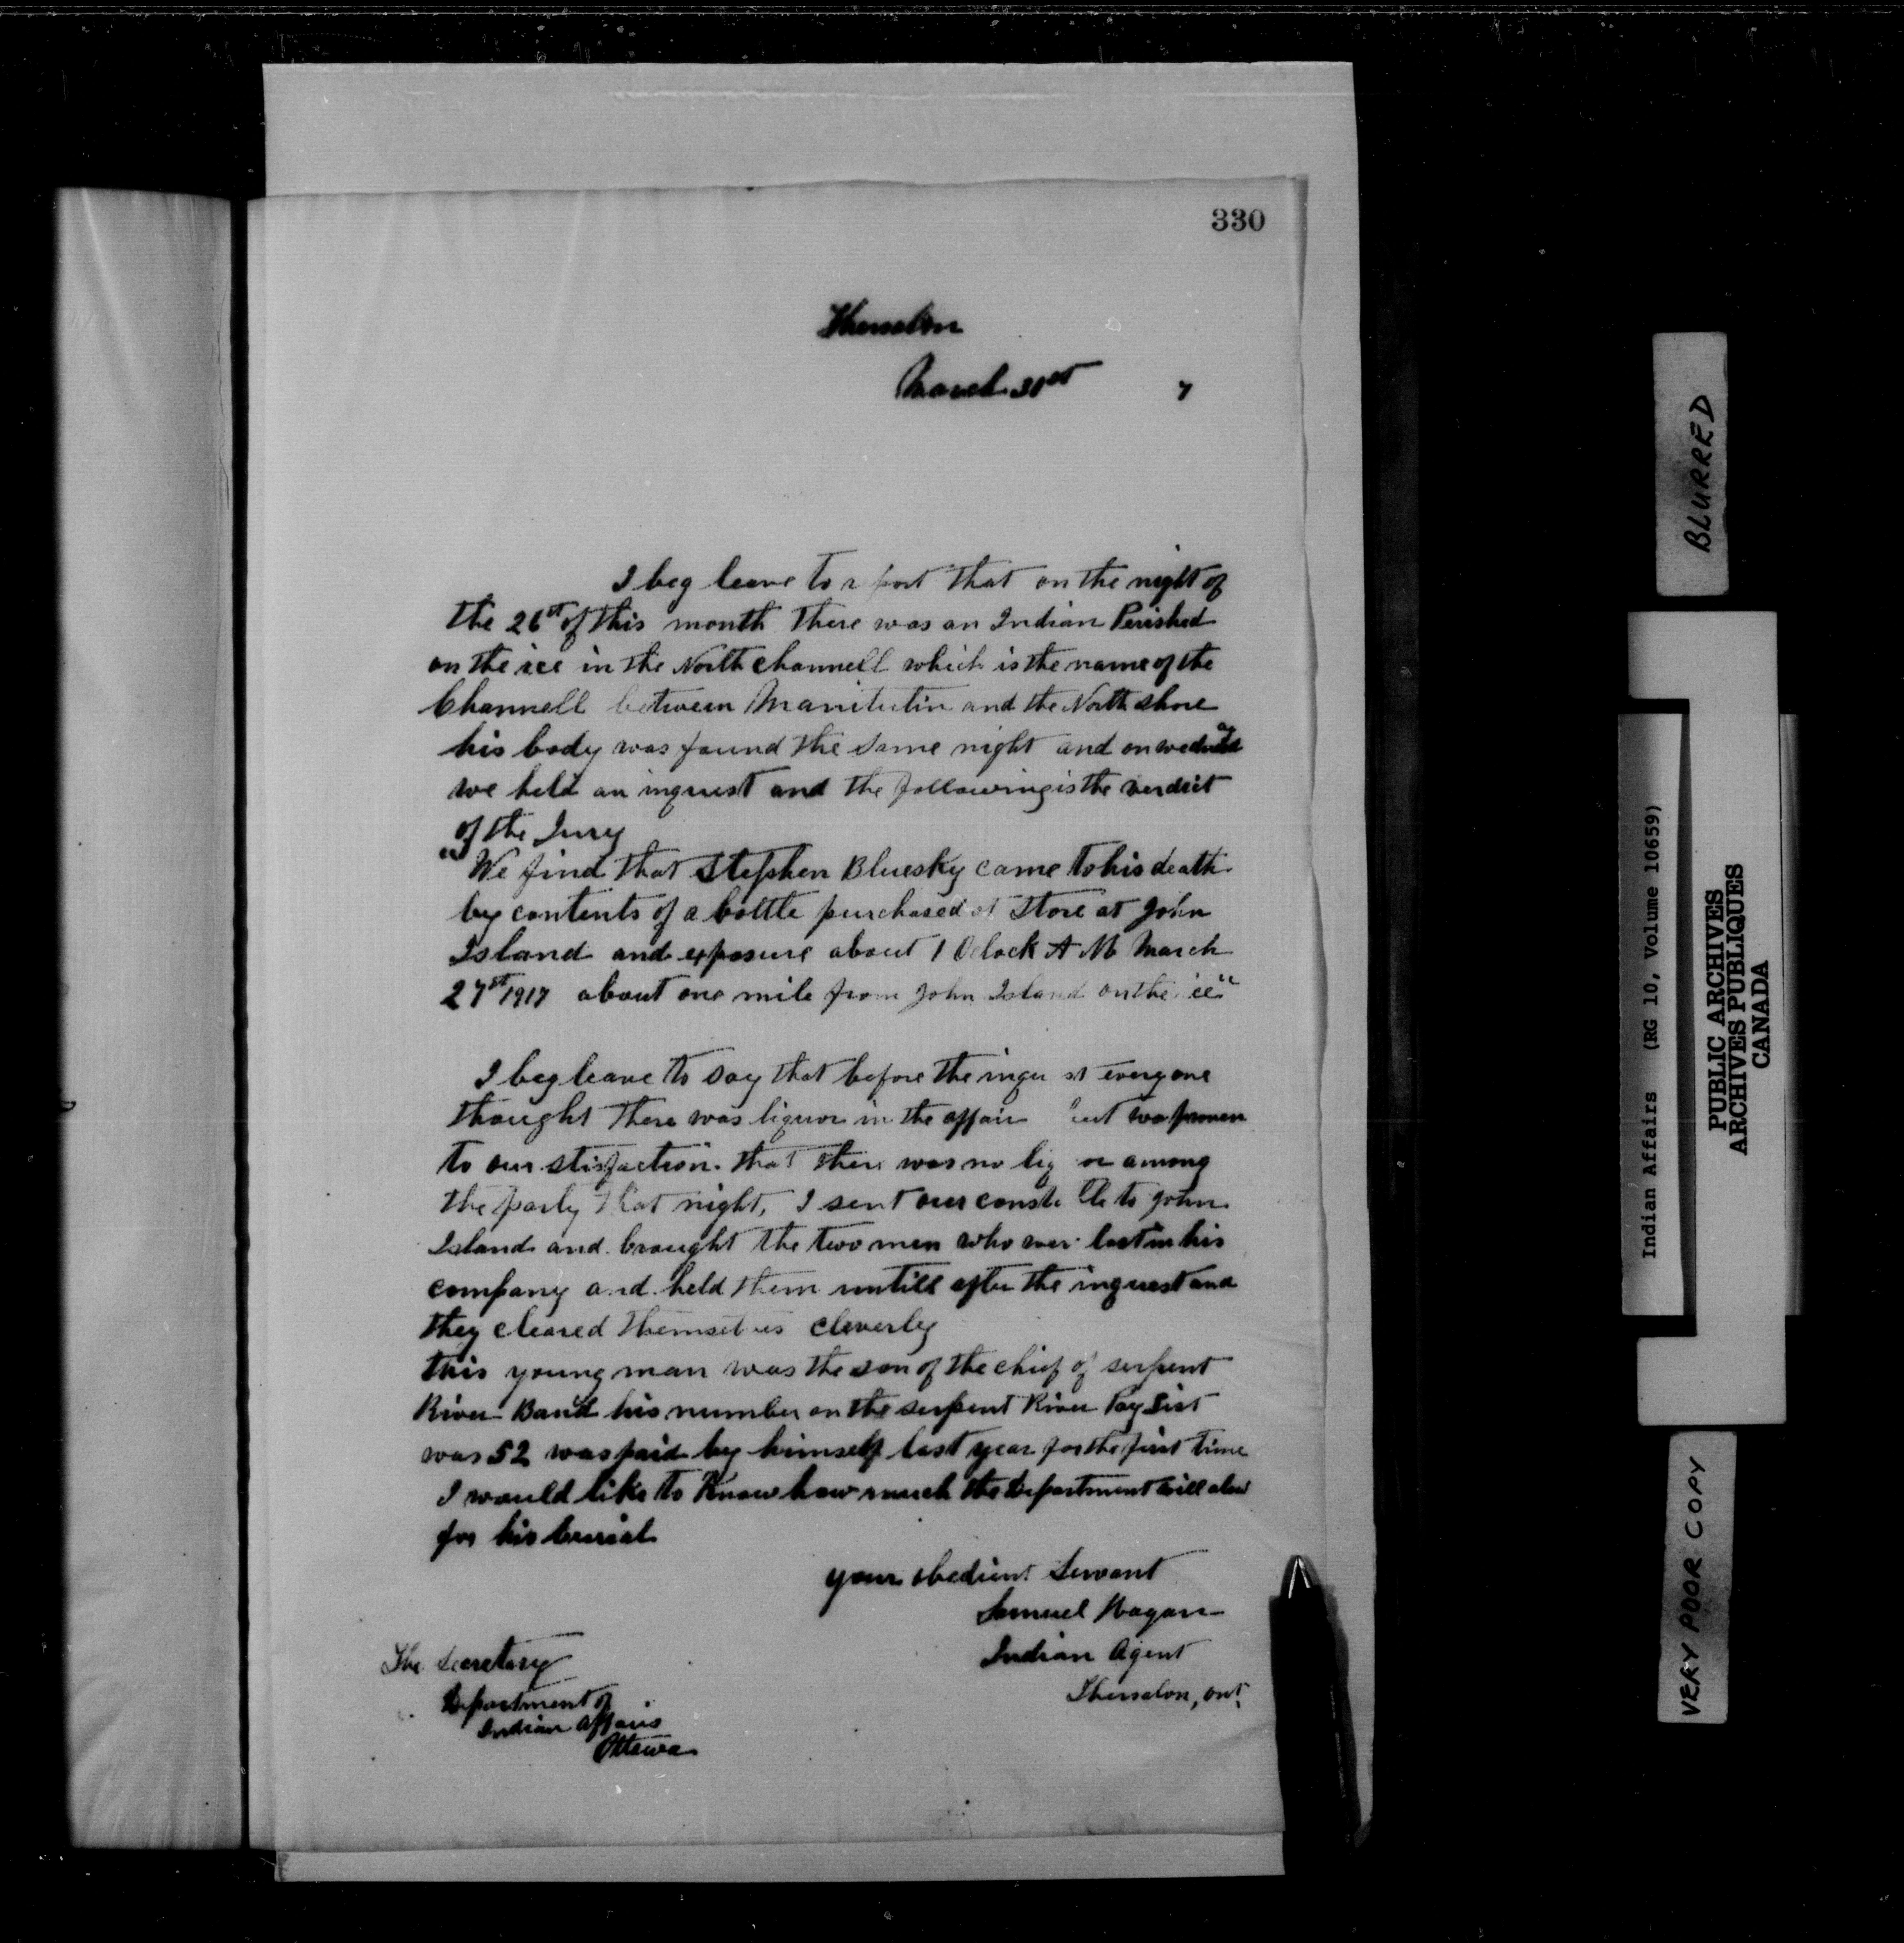 330
Thessalon
March 31st 7
I beg leave to r port that on the night of
the 26st of this month there was an Indian Perished
on the ice in the North Channell which is the name of the
Channell between Manitulin and the North shore
his body was found the same night and on
we held an inquest and the following is the verdict
of the Jury
"We find that Stephen Bluesky came to his death
by contents of a bottle purchased at Store at John
Island and exposure about 1 Oclock A M March
27st 1917 about one mile from John Island on the ice"
I beg leave to say that before the inqu st everyone
thought there was liquor in the affair but was proven
to our stisfaction that there was no liq or among
the party that night, I sent our const ble to John
Island and brought the two men who wer last in his
company and held them untill after the inquest and
they cleared themselves cleverly
this young man was the son of the chief of serpent
River Band his number on the serpent River Pay List
was 52 was paid by himself last year for the first time
I would like to Know how much the Department will alow
for his burial
your obedient Servant
Samuel Hagan
Indian Agent
Thessalon, ont.
The Secretary
Department of
Indian Affairs
Ottawa
BLURRED
Indian Affairs (RG 10, Volume 10659)
PUBLIC ARCHIVES
ARCHIVES PUBLIQUES
CANADA
VERY POOR COPY